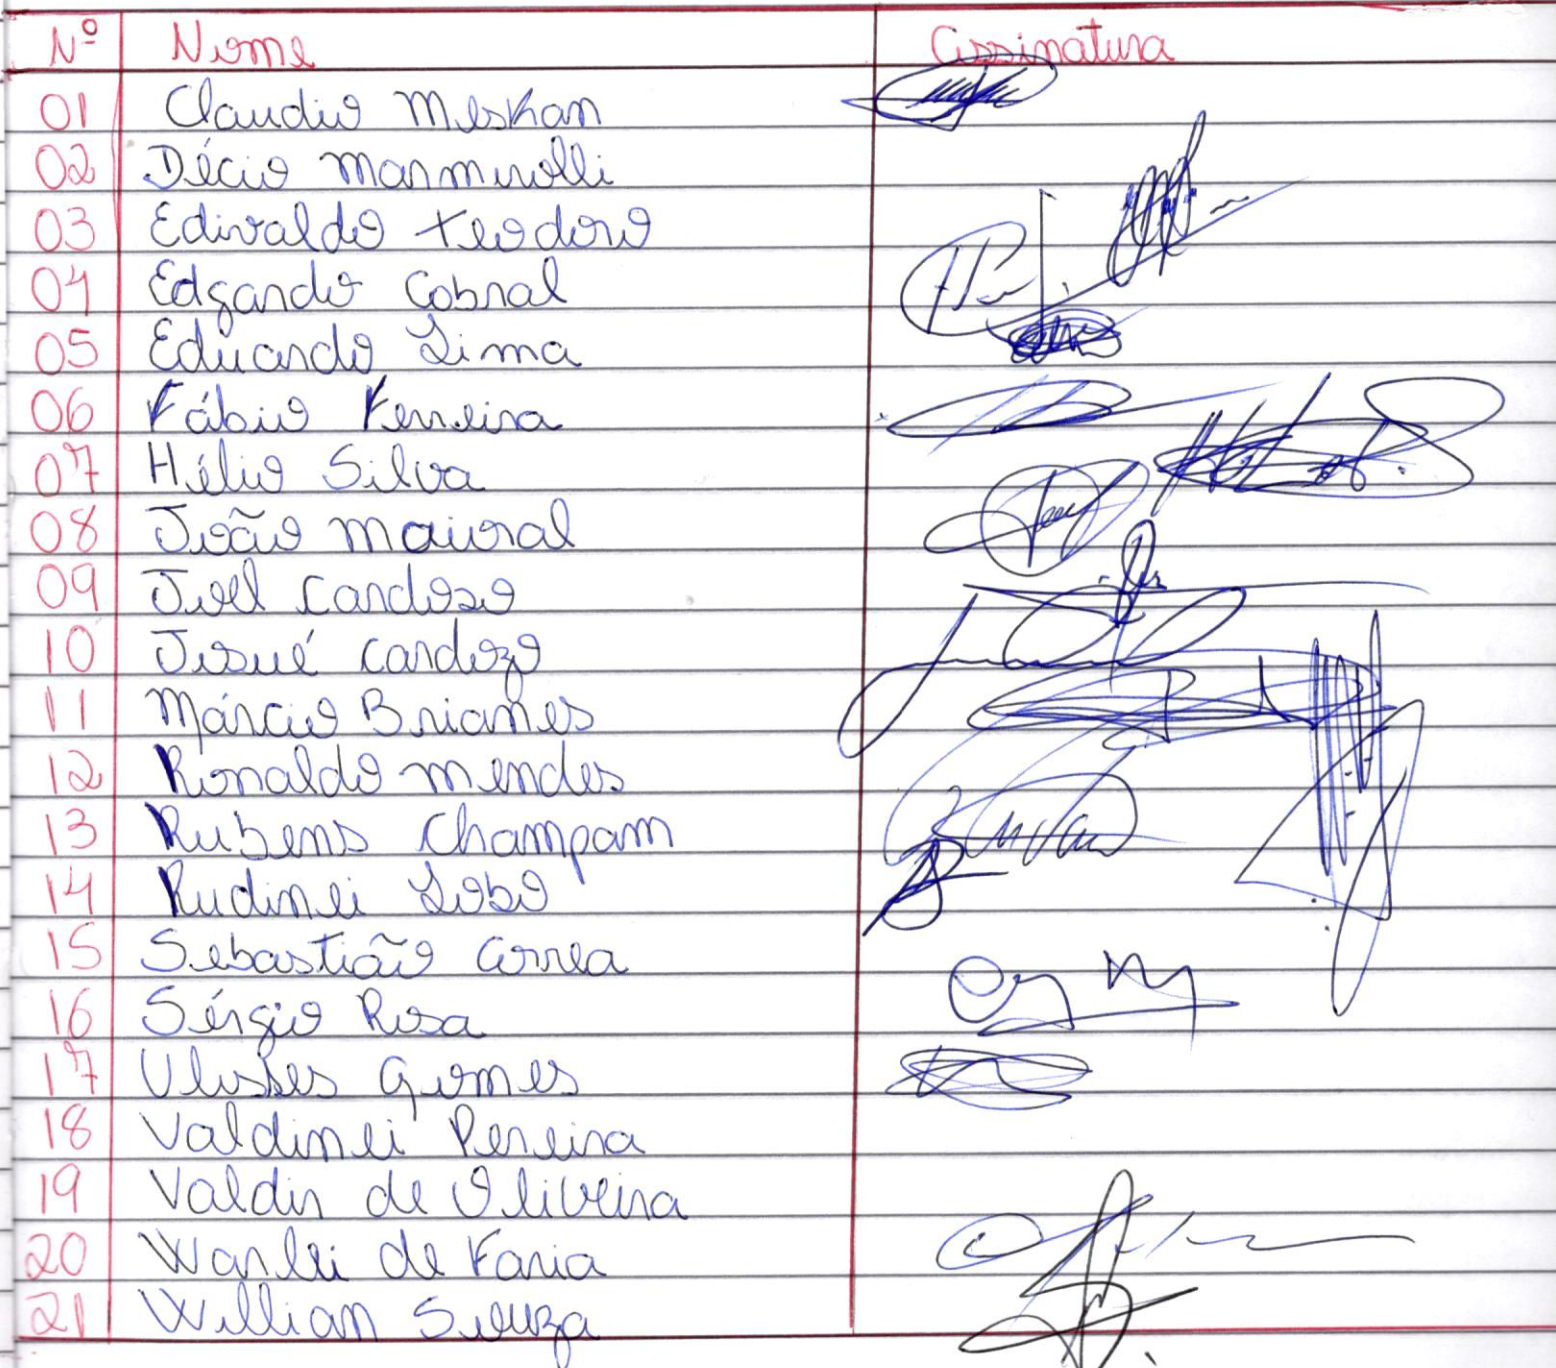 Nº Nome Assinatura
01 Claudio Meskan
02 Décio Marmirolli
03 Edivaldo Teodoro
04 Edgardo Cobral
05 Eduardo Lima
06 Fábio Ferreira
07 Hélio Silva
08 João Maioral
09 Joel Cardoso
10 Josué Cardozo
11 Márcio Brianes
12 Ronaldo Mendes
13 Rubens Champam
14 Rudinei Lobo
15 Sebastião Correa
16 Sérgio Rosa
17 Ulisses Gomes
18 Valdinei Pereira
19 Valdir de Oliveira
20 Warlei de Faria
21 Willian Souza